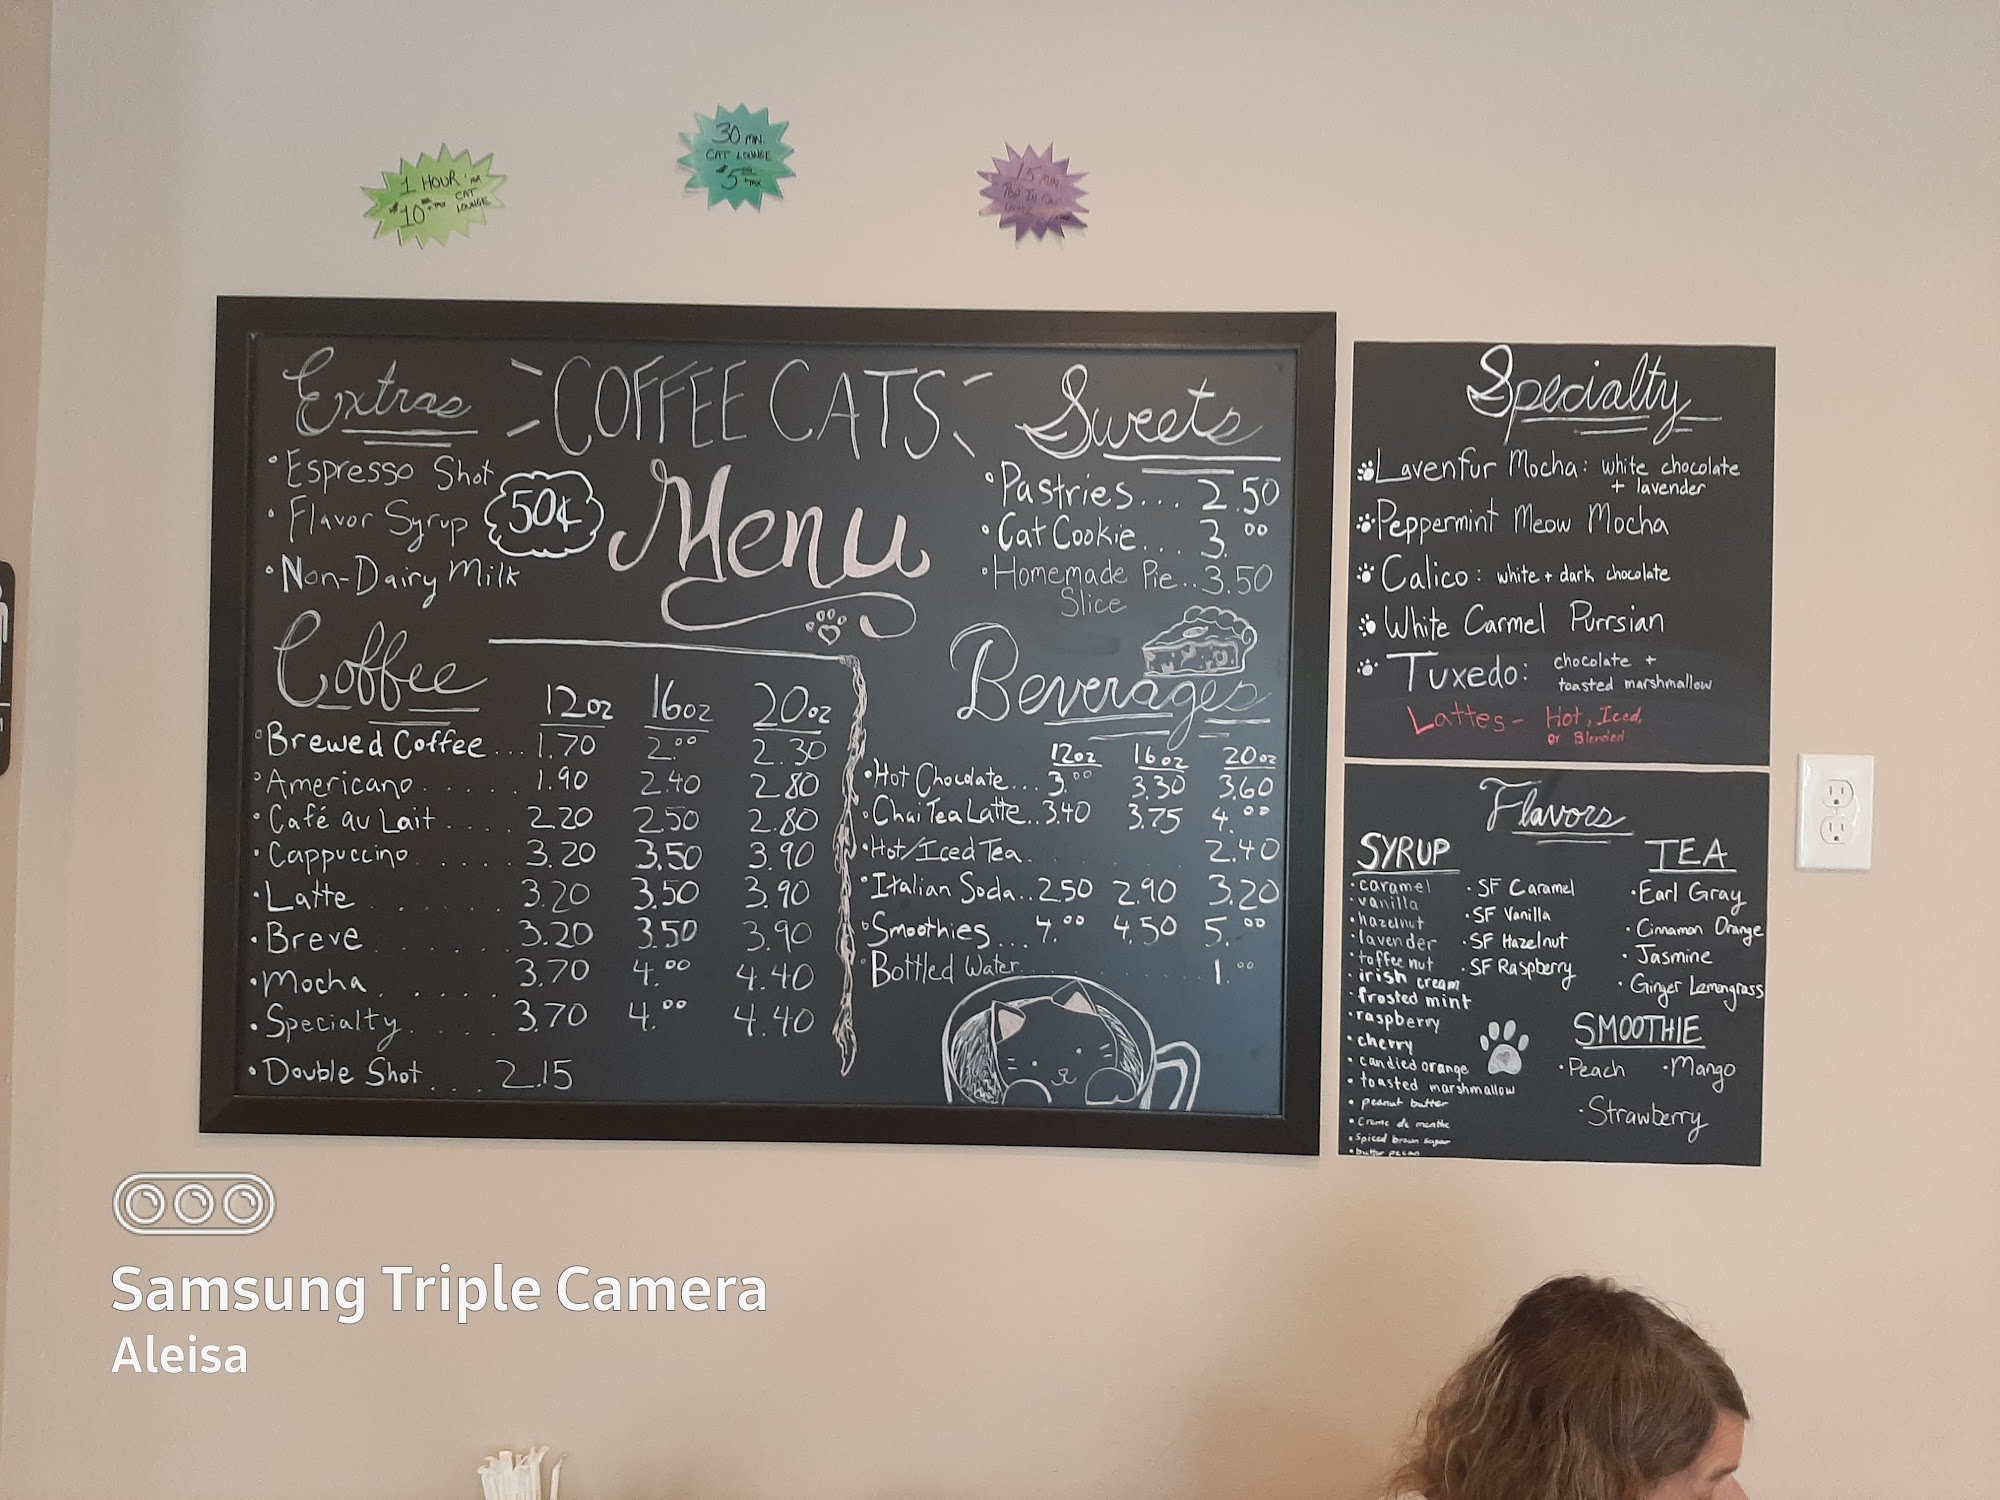 1 HOUR
$10.00 +TAX CAT LOUNGE
30 MIN.
CAT LOUNGE
$5.00 +TAX
15 MIN
COFFEE CATS
Menu
Extras
• Espresso Shot
• Flavor Syrup
• Non-Dairy Milk
50¢
Sweets
• Pastries... 2.50
• Cat Cookie... 3.00
• Homemade Pie..3.50
Slice
Coffee
12oz 16oz 20oz
• Brewed Coffee... 1.70 2.00 2.30
• Americano..... 1.90 2.40 2.80
• Café au Lait.... 2.20 2.50 2.80
• Cappuccino..... 3.20 3.50 3.90
• Latte...... 3.20 3.50 3.90
• Breve...... 3.20 3.50 3.90
• Mocha..... 3.70 4.00 4.40
• Specialty.... 3.70 4.00 4.40
• Double Shot... 2.15
Beverages
12oz 16oz 20oz
• Hot Chocolate... 3.00 3.30 3.60
• Chai Tea Latte..3.40 3.75 4.00
• Hot/Iced Tea....... 2.40
• Italian Soda..2.50 2.90 3.20
• Smoothies... 4.00 4.50 5.00
• Bottled Water....... 1.00
Specialty
Lavenfur Mocha: white chocolate
+ lavender
Peppermint Meow Mocha
Calico: white + dark chocolate
White Carmel Purrsian
Tuxedo: chocolate +
toasted marshmallow
Lattes - Hot, Iced,
or Blended
Flavors
SYRUP
• caramel
• vanilla
• hazelnut
• lavender
• toffee nut
• irish cream
• frosted mint
• raspberry
• cherry
• candied orange
• toasted marshmallow
• peanut butter
• Creme de menthe
• Spiced brown sugar
• butter pecan
• SF Caramel
• SF Vanilla
• SF Hazelnut
• SF Raspberry
TEA
• Earl Gray
• Cinnamon Orange
• Jasmine
• Ginger Lemongrass
SMOOTHIE
• Peach • Mango
• Strawberry
Samsung Triple Camera
Aleisa